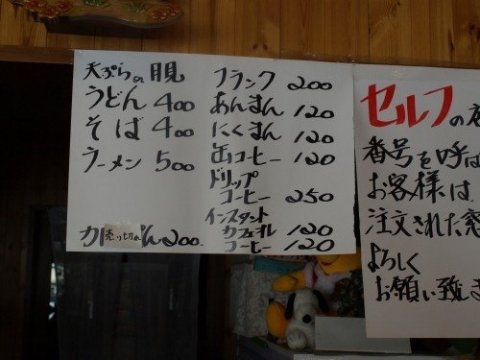 天ぷらの
うどん 400
そば 400
ラーメン 500
売り切れ 200.
フランク 200
あんまん 120
にくまん 120
缶コーヒー 120
ドリップ
コーヒー 250
インスタント
カフェオレ 120
コーヒー 120
セルフの
番号を呼ば
お客様は
注文された窓
よろしく
お願い致しま